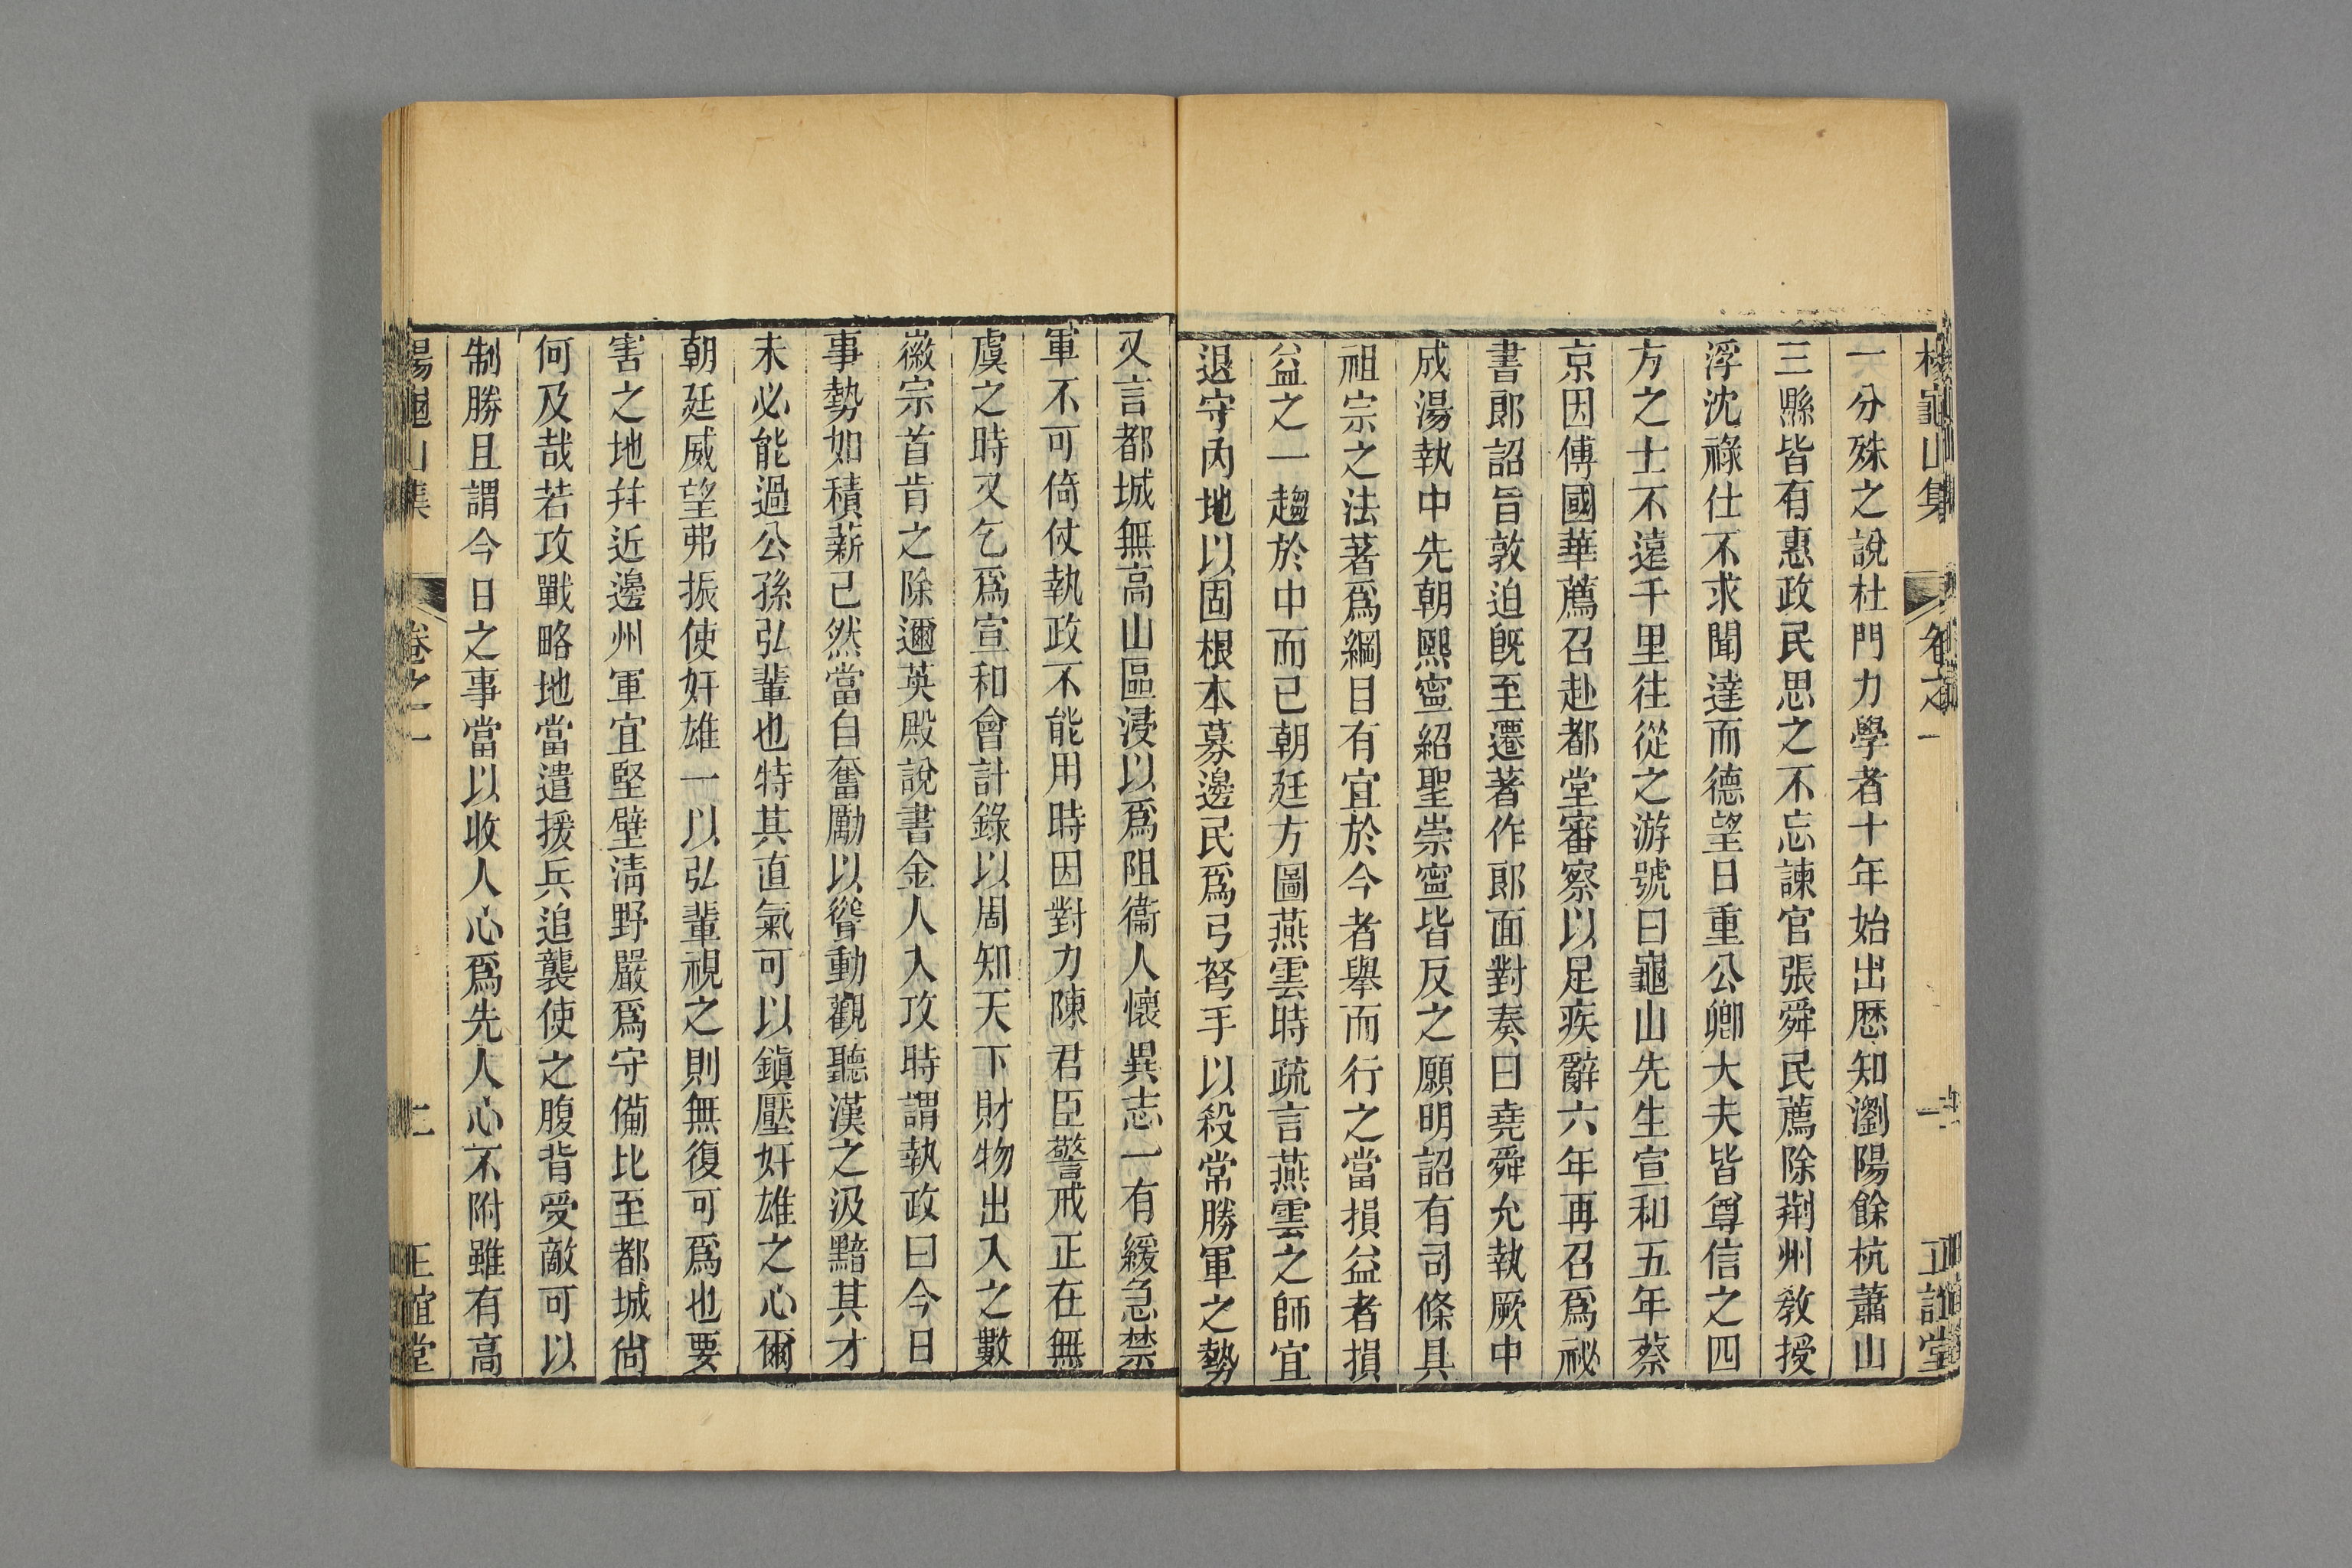 楊龜山集 卷之一 一 正誼堂
一分殊之說杜門力學者十年始出歷知瀏陽餘杭蕭山
三縣皆有惠政民思之不忘諫官張舜民薦除荆州敎授
浮沈祿仕不求聞達而德望日重公卿大夫皆尊信之四
方之士不遠千里往從之游號曰龜山先生宣和五年蔡
京因傅國華薦召赴都堂審察以足疾辭六年再召爲祕
書郎詔旨敦迫旣至遷著作郎面對奏曰堯舜允執厥中
成湯執中先朝熙寧紹聖崇寧皆反之願明詔有司條具
祖宗之法著爲綱目有宜於今者舉而行之當損益者損
益之一趨於中而已朝廷方圖燕雲時疏言燕雲之師宜
退守內地以固根本募邊民爲弓弩手以殺常勝軍之勢
又言都城無高山區浸以爲阻衞人懷異志一有緩急禁
軍不可倚仗執政不能用時因對力陳君臣警戒正在無
虞之時又乞爲宣和會計錄以周知天下財物出入之數
徽宗首肯之除邇英殿說書金人入攻時謂執政曰今日
事勢如積薪已然當自奮勵以聳動觀聽漢之汲黯其才
未必能過公孫弘輩也特其直氣可以鎭壓奸雄之心爾
朝廷威望弗振使奸雄一以弘輩視之則無復可爲也要
害之地幷近邊州軍宜堅壁淸野嚴爲守備比至都城尙
何及哉若攻戰略地當遣援兵追襲使之腹背受敵可以
制勝且謂今日之事當以收人心爲先人心不附雖有高
楊龜山集 卷之一 二 正誼堂